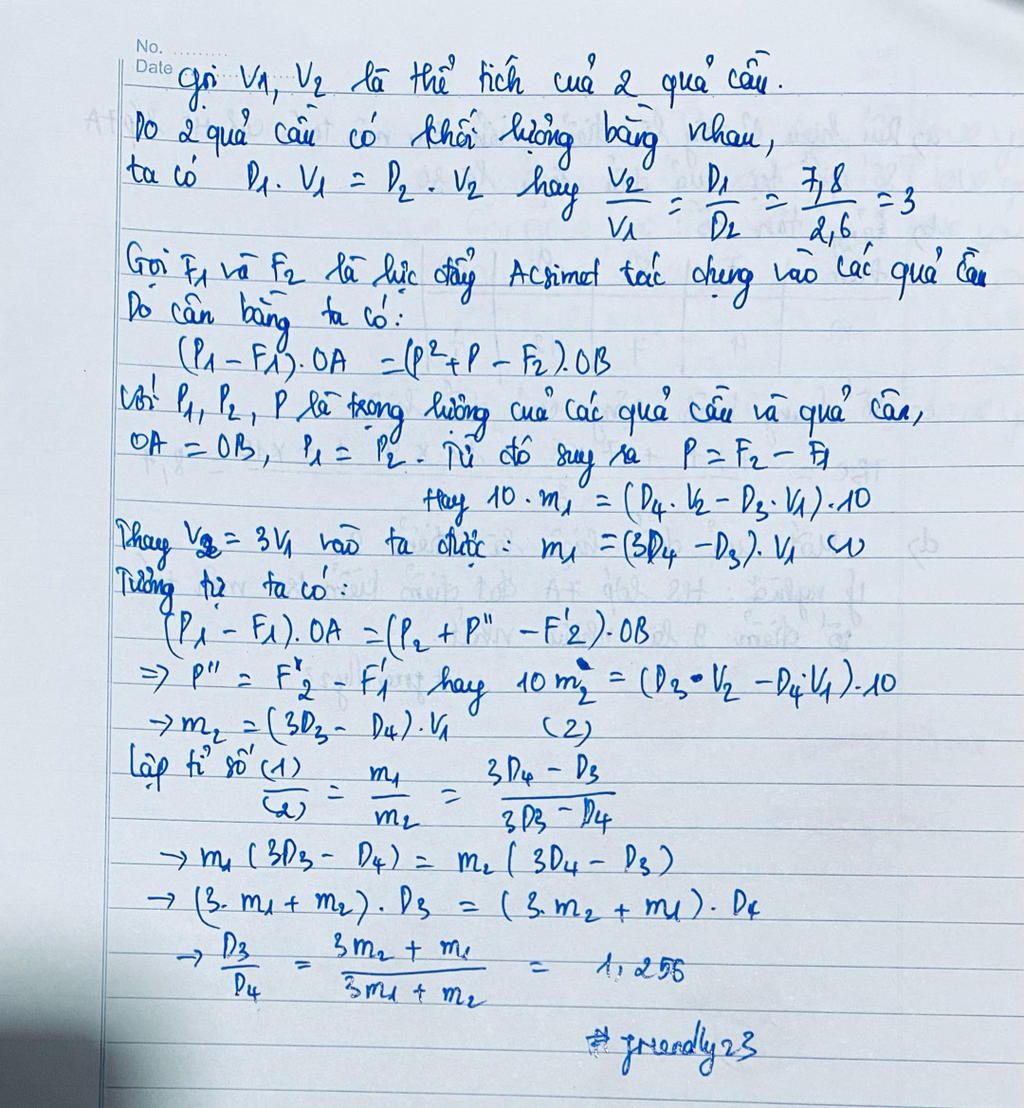 No. ..........
Date
Gọi V1, V2 là thể tích của 2 quả cầu.
Do 2 quả cầu có khối lượng bằng nhau,
ta có D1. V1 = D2 . V2 hay V2/V1 = D1/D2 = 7,8/2,6 = 3
Gọi F1 và F2 là lực đẩy Acsimet tác dụng vào các quả cầu
Do cân bằng ta có:
(P1 - F1). OA = (P2 + P - F2). OB
Với P1, P2, P là trọng lượng của các quả cầu và quả cân,
OA = OB, P1 = P2. Từ đó suy ra P = F2 - F1
Hay 10 . m1 = (D4. V2 - D3. V1).10
Thay V2 = 3V1 vào ta được: m1 = (3D4 - D3). V1 (1)
Tương tự ta có:
(P1 - F1). OA = (P2 + P" - F'2). OB
=> P" = F'2 - F'1 hay 10 m2 = (D3 . V2 - D4. V1).10
→ m2 = (3D3 - D4). V1 (2)
Lập tỉ số (1)/(2) = m1/m2 = 3D4 - D3/3D3 - D4
→ m1 (3D3 - D4) = m2 (3D4 - D3)
→ (3. m1 + m2). D3 = (3. m2 + m1). D4
→ D3/D4 = 3m2 + m1/3m1 + m2 = 1,256